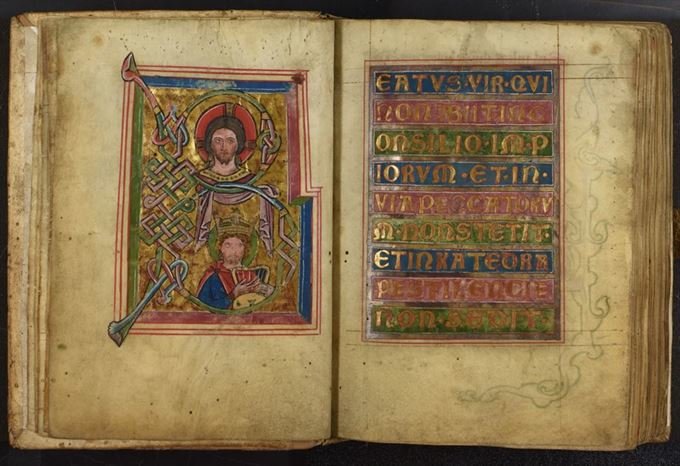 B
EATVS·VIR·QVI
NON·ABIIT·INC
ONSILIO·IM·P
IORVM·ET·IN·
VIA PECCATORV
M·NON STETIT
ET IN KATEDRA
PESTILENCIE
NON·SEDIT·